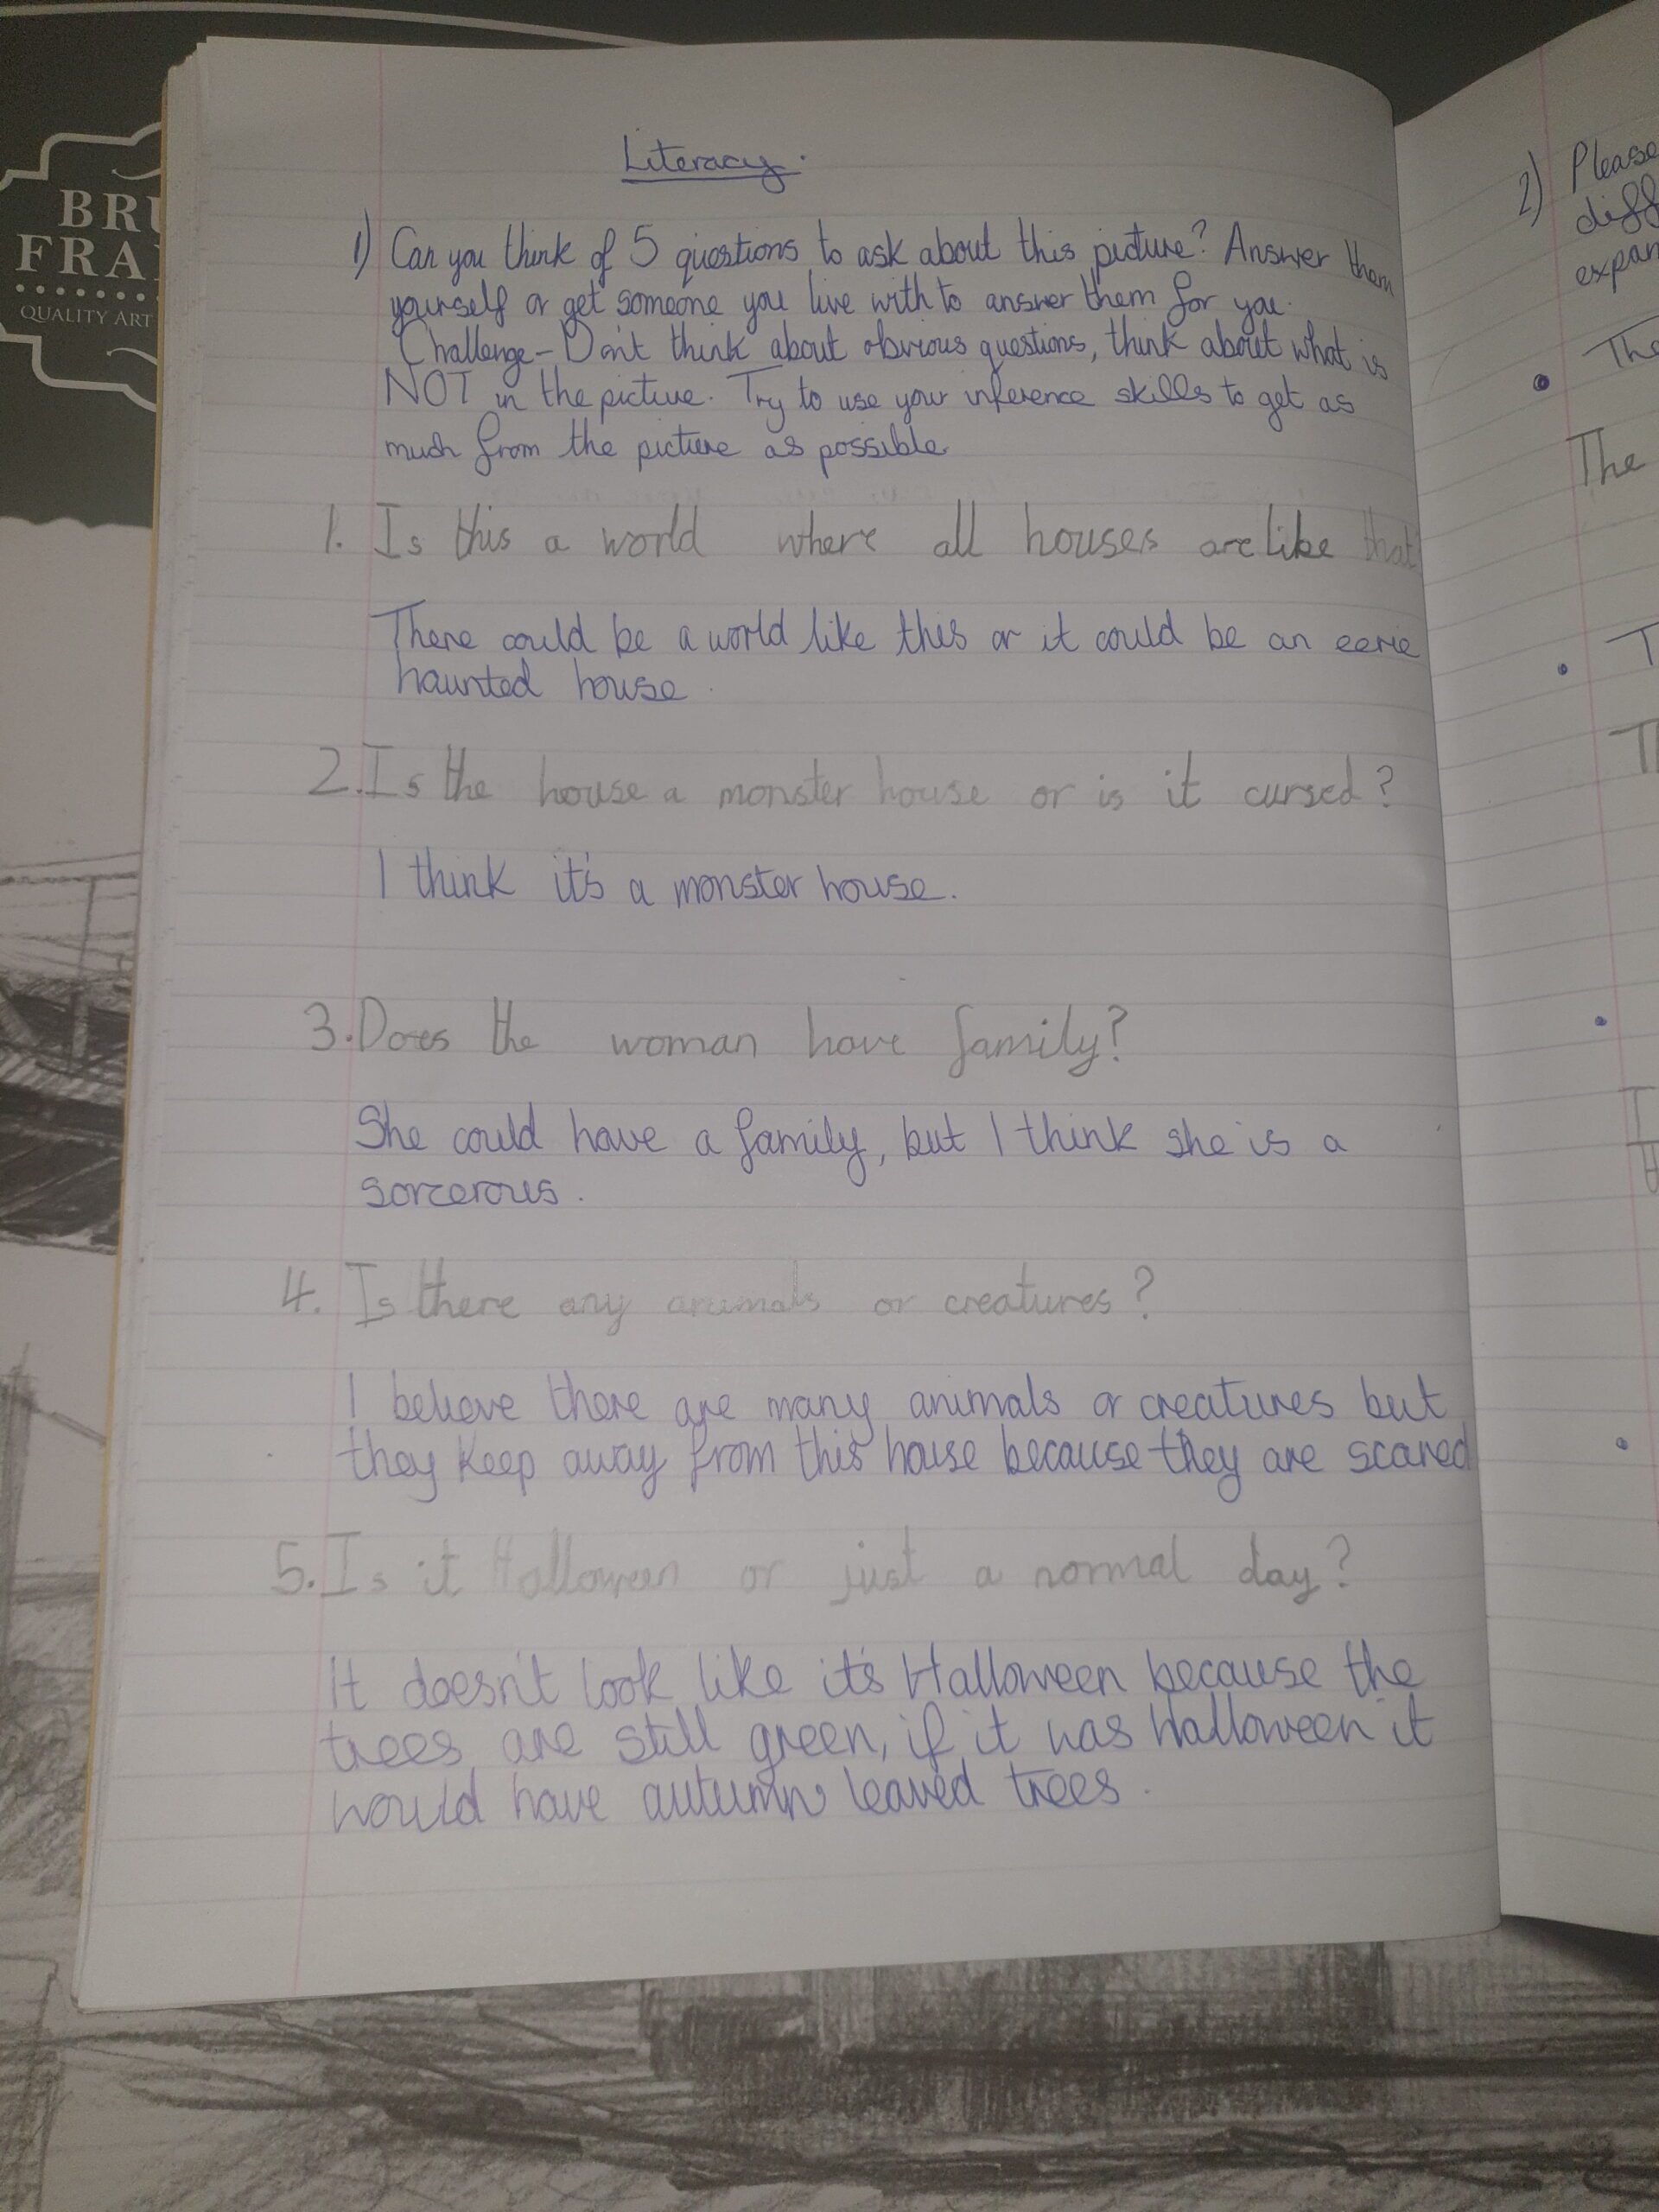 BRU
FRA
QUALITY ART
Literacy.
1) Can you think of 5 questions to ask about this picture? Answer them
yourself or get someone you live with to answer them for you.
Challenge - Don't think about obvious questions, think about what is
NOT in the picture. Try to use your inference skills to get as
much from the picture as possible.
1. Is this a world where all houses are like that
There could be a world like this or it could be an eerie
haunted house.
2. Is the house a monster house or is it cursed?
I think it's a monster house.
3. Does the woman have family?
She could have a family, but I think she is a
sorcerous.
4. Is there any animals or creatures?
I believe there are many animals or creatures but
they keep away from this house because they are scared
5. Is it Halloween or just a normal day?
It doesn't look like it's Halloween because the
trees are still green, if it was Halloween it
would have autumn leaved trees.
2) Please
diff
expan
The
The
T
T